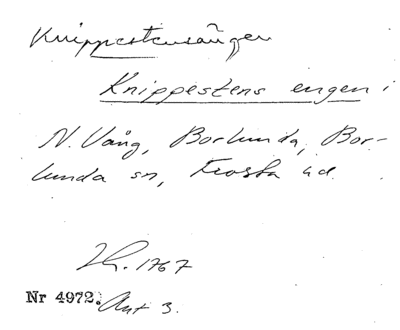 Knippestensängen
Knippestens engen i
N. Vång, Borlunda, Bor-
lunda sn, Frosta hd
Lh. 1767
Nr 4972. Akt 3.